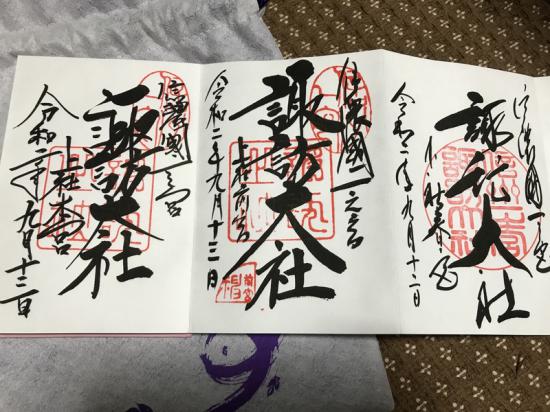 信濃國一之宮
諏訪大社
小社春宮
令和二年九月十二日
信濃國一之宮
諏訪大社
上社前宮
令和二年九月十三日
前宮
信濃國一之宮
諏訪大社
上社本宮
令和二年九月十三日